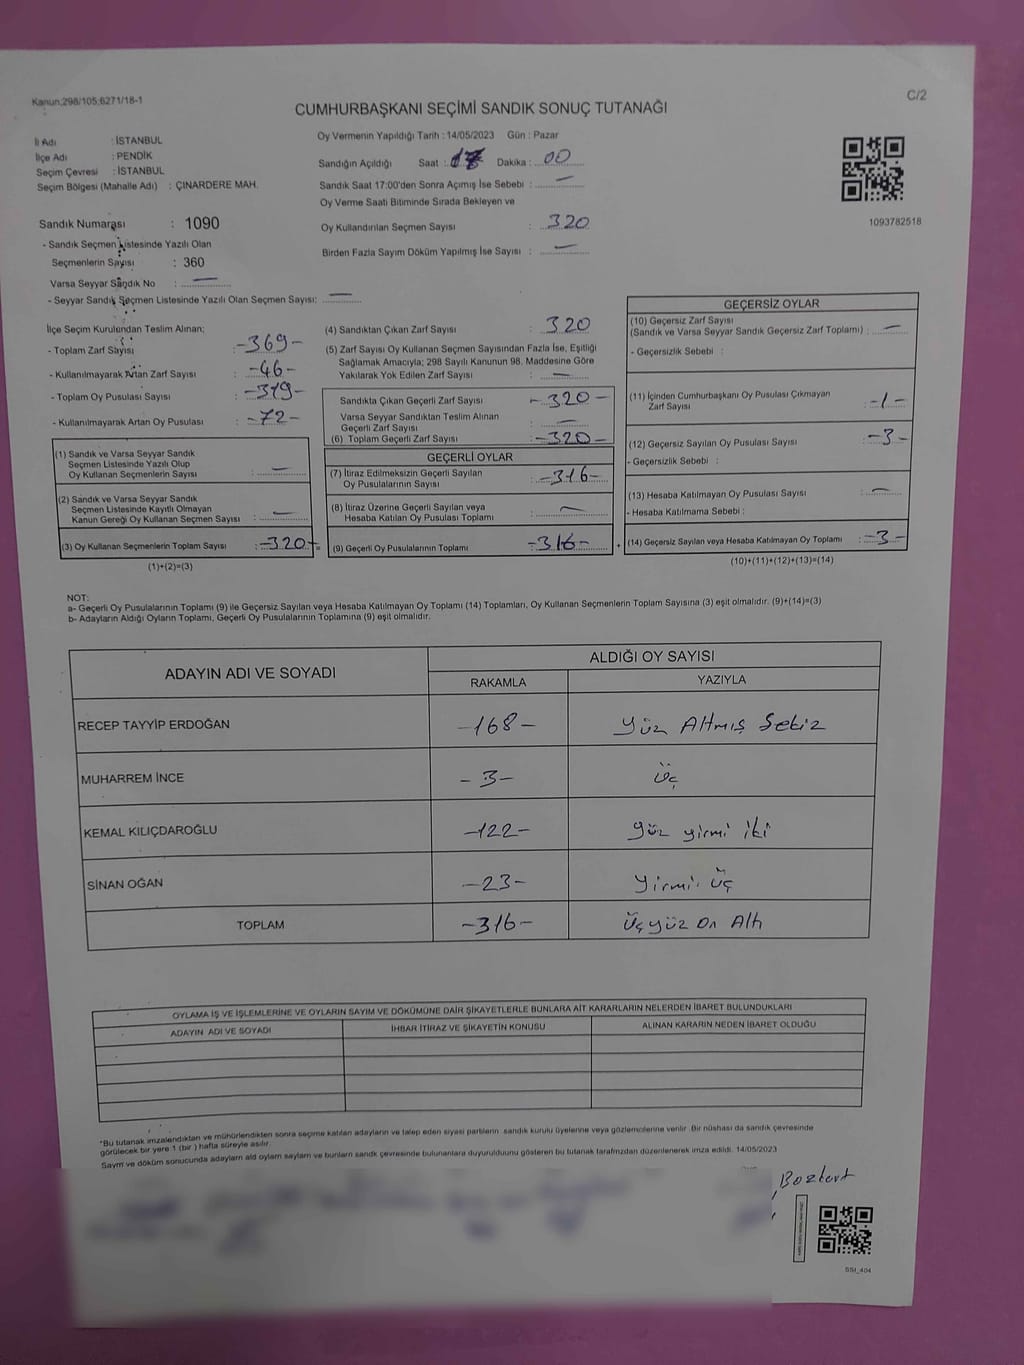 Kanun;298/105;6271/18-1
C/2
CUMHURBAŞKANI SEÇİMİ SANDIK SONUÇ TUTANAĞI
İl Adı : İSTANBUL
İlçe Adı : PENDİK
Seçim Çevresi : İSTANBUL
Seçim Bölgesi (Mahalle Adı) : ÇINARDERE MAH.
Oy Vermenin Yapıldığı Tarih : 14/05/2023 Gün : Pazar
Sandığın Açıldığı Saat : 17 Dakika : 00
Sandık Saat 17:00'den Sonra Açımış İse Sebebi : —
Oy Verme Saati Bitiminde Sırada Bekleyen ve
Oy Kullandırılan Seçmen Sayısı : 320
Birden Fazla Sayım Döküm Yapılmış İse Sayısı : —
1093782518
Sandık Numarası : 1090
- Sandık Seçmen Listesinde Yazılı Olan
Seçmenlerin Sayısı : 360
Varsa Seyyar Sandık No : —
- Seyyar Sandık Seçmen Listesinde Yazılı Olan Seçmen Sayısı: —
İlçe Seçim Kurulundan Teslim Alınan;
- Toplam Zarf Sayısı : -369-
- Kullanılmayarak Artan Zarf Sayısı : -46-
- Toplam Oy Pusulası Sayısı :
- Kullanılmayarak Artan Oy Pusulası : -72-
(1) Sandık ve Varsa Seyyar Sandık
Seçmen Listesinde Yazılı Olup
Oy Kullanan Seçmenlerin Sayısı : —
(2) Sandık ve Varsa Seyyar Sandık
Seçmen Listesinde Kayıtlı Olmayan
Kanun Gereği Oy Kullanan Seçmen Sayısı : —
(3) Oy Kullanan Seçmenlerin Toplam Sayısı : -320-
(1)+(2)=(3)
=
(4) Sandıktan Çıkan Zarf Sayısı : 320
(5) Zarf Sayısı Oy Kullanan Seçmen Sayısından Fazla İse, Eşitliği
Sağlamak Amacıyla; 298 Sayılı Kanunun 98. Maddesine Göre
Yakılarak Yok Edilen Zarf Sayısı : —
Sandıkta Çıkan Geçerli Zarf Sayısı : -320-
Varsa Seyyar Sandıktan Teslim Alınan
Geçerli Zarf Sayısı : —
(6) Toplam Geçerli Zarf Sayısı : -320-
GEÇERLİ OYLAR
(7) İtiraz Edilmeksizin Geçerli Sayılan
Oy Pusulalarının Sayısı : -316-
(8) İtiraz Üzerine Geçerli Sayılan veya
Hesaba Katılan Oy Pusulası Toplamı : —
(9) Geçerli Oy Pusulalarının Toplamı : -316-
+
GEÇERSİZ OYLAR
(10) Geçersiz Zarf Sayısı
(Sandık ve Varsa Seyyar Sandık Geçersiz Zarf Toplamı) : —
- Geçersizlik Sebebi :
(11) İçinden Cumhurbaşkanı Oy Pusulası Çıkmayan
Zarf Sayısı : -1-
(12) Geçersiz Sayılan Oy Pusulası Sayısı : -3-
- Geçersizlik Sebebi :
(13) Hesaba Katılmayan Oy Pusulası Sayısı : —
- Hesaba Katılmama Sebebi :
(14) Geçersiz Sayılan veya Hesaba Katılmayan Oy Toplamı : -3-
(10)+(11)+(12)+(13)=(14)
NOT:
a- Geçerli Oy Pusulalarının Toplamı (9) ile Geçersiz Sayılan veya Hesaba Katılmayan Oy Toplamı (14) Toplamları, Oy Kullanan Seçmenlerin Toplam Sayısına (3) eşit olmalıdır. (9)+(14)=(3)
b- Adayların Aldığı Oyların Toplamı, Geçerli Oy Pusulalarının Toplamına (9) eşit olmalıdır.
ADAYIN ADI VE SOYADI
ALDIĞI OY SAYISI
RAKAMLA YAZIYLA
RECEP TAYYİP ERDOĞAN -168- Yüz Altmış Sekiz
MUHARREM İNCE -3- Üç
KEMAL KILIÇDAROĞLU -122- Yüz yirmi iki
SİNAN OĞAN -23- Yirmi Üç
TOPLAM -316- Üçyüz On Altı
OYLAMA İŞ VE İŞLEMLERİNE VE OYLARIN SAYIM VE DÖKÜMÜNE DAİR ŞİKAYETLERLE BUNLARA AİT KARARLARIN NELERDEN İBARET BULUNDUKLARI
ADAYIN ADI VE SOYADI İHBAR İTİRAZ VE ŞİKAYETİN KONUSU ALINAN KARARIN NEDEN İBARET OLDUĞU
*Bu tutanak imzalendiktan ve mühürlendikten sonra seçime katılan adayların ve talep eden siyasi partilerin sandık kurulu üyelerine veya gözlemcilerine verilir. Bir nüshası da sandık çevresinde
görülecek bir yere 1 (bir) hafta süreyle asılır.
Sayım ve döküm sonucunda adayların ald oyların sayıların ve bunların sandık çevresinde bulunanlara duyurulduunu gösteren bu tutanak tarafımızdan düzenlenerek imza edildi. 14/05/2023
Bozkurt
SSI_404